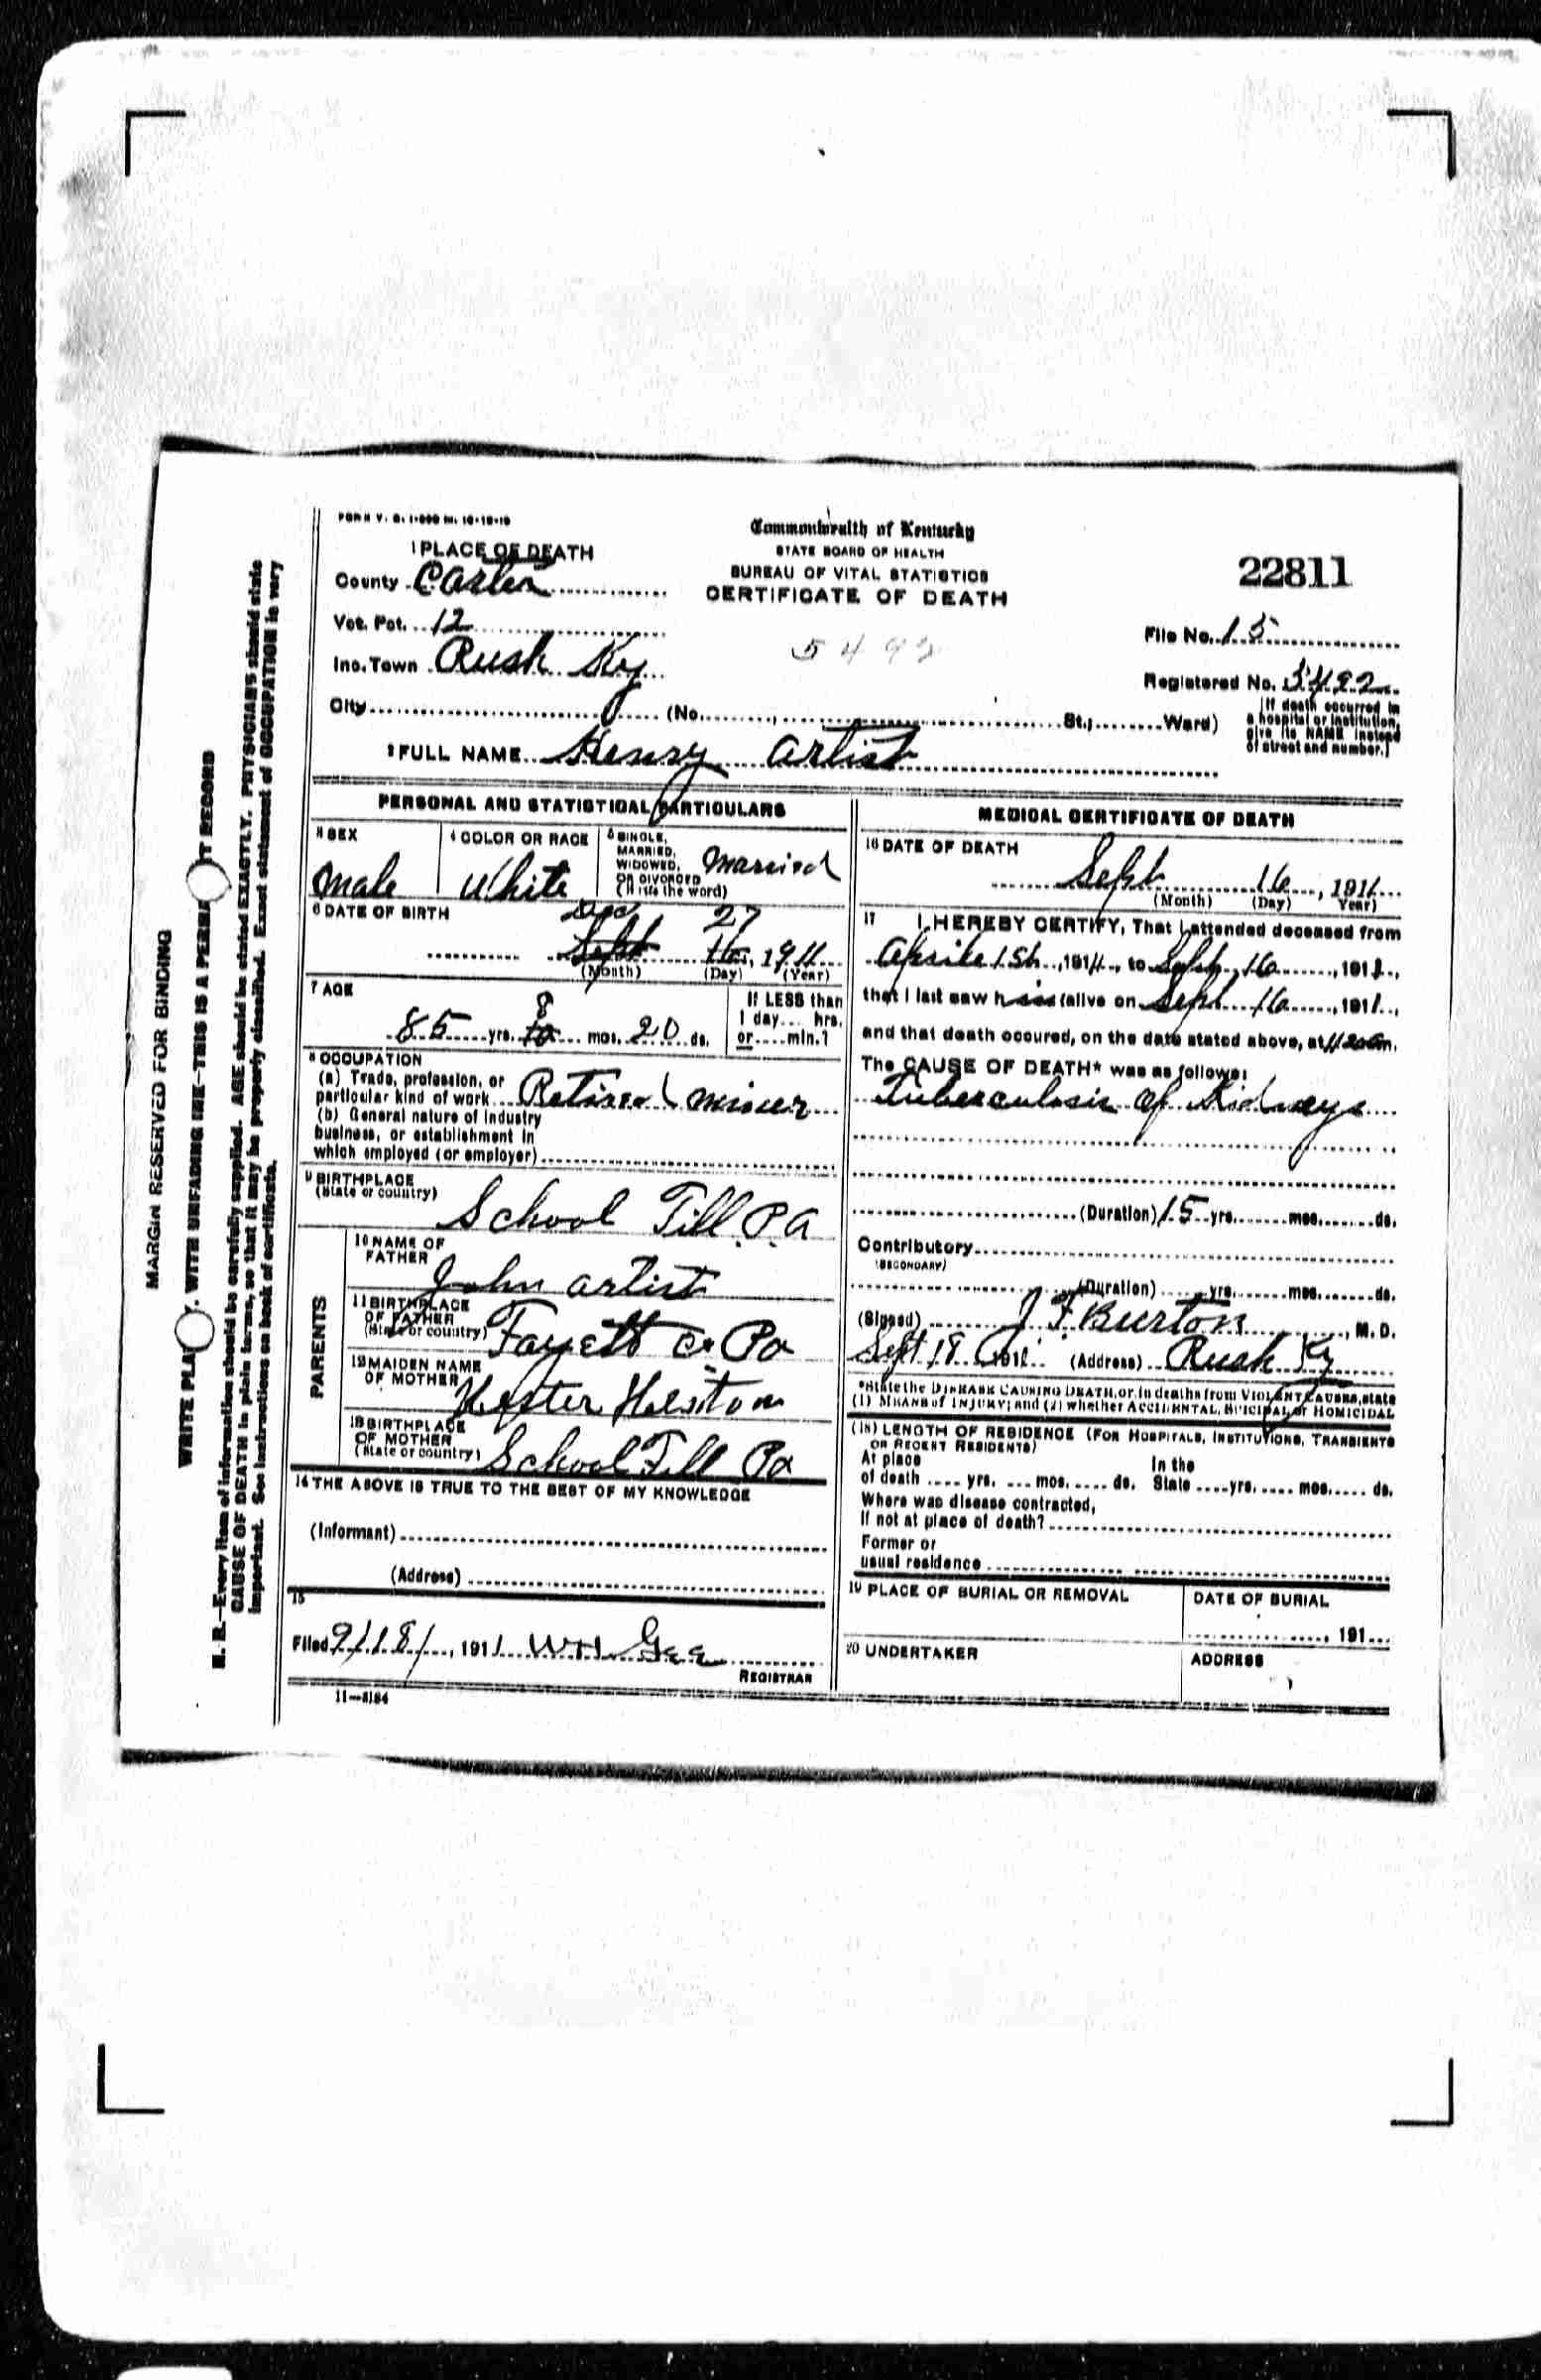 FORM V. S. 1-500 M. 10-10-10
1 PLACE OF DEATH
County Carter
Vot. Pct. 12
Inc. Town Rush Ky
City (No. , St.; Ward)
Commonwealth of Kentucky
STATE BOARD OF HEALTH
BUREAU OF VITAL STATISTICS
CERTIFICATE OF DEATH
5492
22811
File No. 15
Registered No. 5492
[If death occurred in
a hospital or institution,
give its NAME instead
of street and number.]
2 FULL NAME Henry Artist
PERSONAL AND STATISTICAL PARTICULARS
3 SEX
Male
4 COLOR OR RACE
White
5 SINGLE,
MARRIED,
WIDOWED,
OR DIVORCED
(Write the word)
Married
6 DATE OF BIRTH
Dec 27
Sept 16, 1911
(Month) (Day) (Year)
7 AGE
8
85 yrs. mos. 20 ds.
If LESS than
1 day... hrs.
or....min.?
8 OCCUPATION
(a) Trade, profession, or
particular kind of work Retired miner
(b) General nature of Industry
business, or establishment in
which employed (or employer)
9 BIRTHPLACE
(State or country)
School Till P.A
PARENTS
10 NAME OF
FATHER
John Artist
11 BIRTHPLACE
OF FATHER
(State or country) Fayett Co. Pa
12 MAIDEN NAME
OF MOTHER
Hester Helston
13 BIRTHPLACE
OF MOTHER
(State or country) School Till Pa
14 THE ABOVE IS TRUE TO THE BEST OF MY KNOWLEDGE
(Informant)
(Address)
15
Filed 9/18/, 1911 WH Gee
REGISTRAR
11—3184
MEDICAL CERTIFICATE OF DEATH
16 DATE OF DEATH
Sept 16, 1911
(Month) (Day) Year)
17 I HEREBY CERTIFY, That I attended deceased from
Aprile 1st, 1911, to Sept, 16, 1911,
that I last saw him alive on Sept 16, 1911,
and that death occured, on the date stated above, at m.
The CAUSE OF DEATH* was as follows:
Tuberculosis of Kidneys
(Duration) 15 yrs. mos. ds.
Contributory
(SECONDARY)
(Duration) yrs. mos. ds.
(Signed) J F Burton, M. D.
Sept 18 1911 (Address) Rush Ky
*State the DISEASE CAUSING DEATH, or, in deaths from VIOLENT CAUSES, state
(1) MEANS of INJURY; and (2) whether ACCIDENTAL, SUICIDAL, or HOMICIDAL
(18) LENGTH OF RESIDENCE (FOR HOSPITALS, INSTITUTIONS, TRANSIENTS
OR RECENT RESIDENTS)
At place In the
of death .... yrs. ... mos. .... ds. State ....yrs. .... mos. .... ds.
Where was disease contracted,
If not at place of death?
Former or
usual residence
19 PLACE OF BURIAL OR REMOVAL
DATE OF BURIAL
, 191...
20 UNDERTAKER
ADDRESS
MARGIN RESERVED FOR BINDING
WRITE PLA Y. WITH UNFADING INK—THIS IS A PERMA T RECORD
N. B.—Every item of information should be carefully supplied. AGE should be stated EXACTLY. PHYSICIANS should state
CAUSE OF DEATH in plain terms, so that it may be properly classified. Exact statement of OCCUPATION is very
important. See instructions on back of certificate.